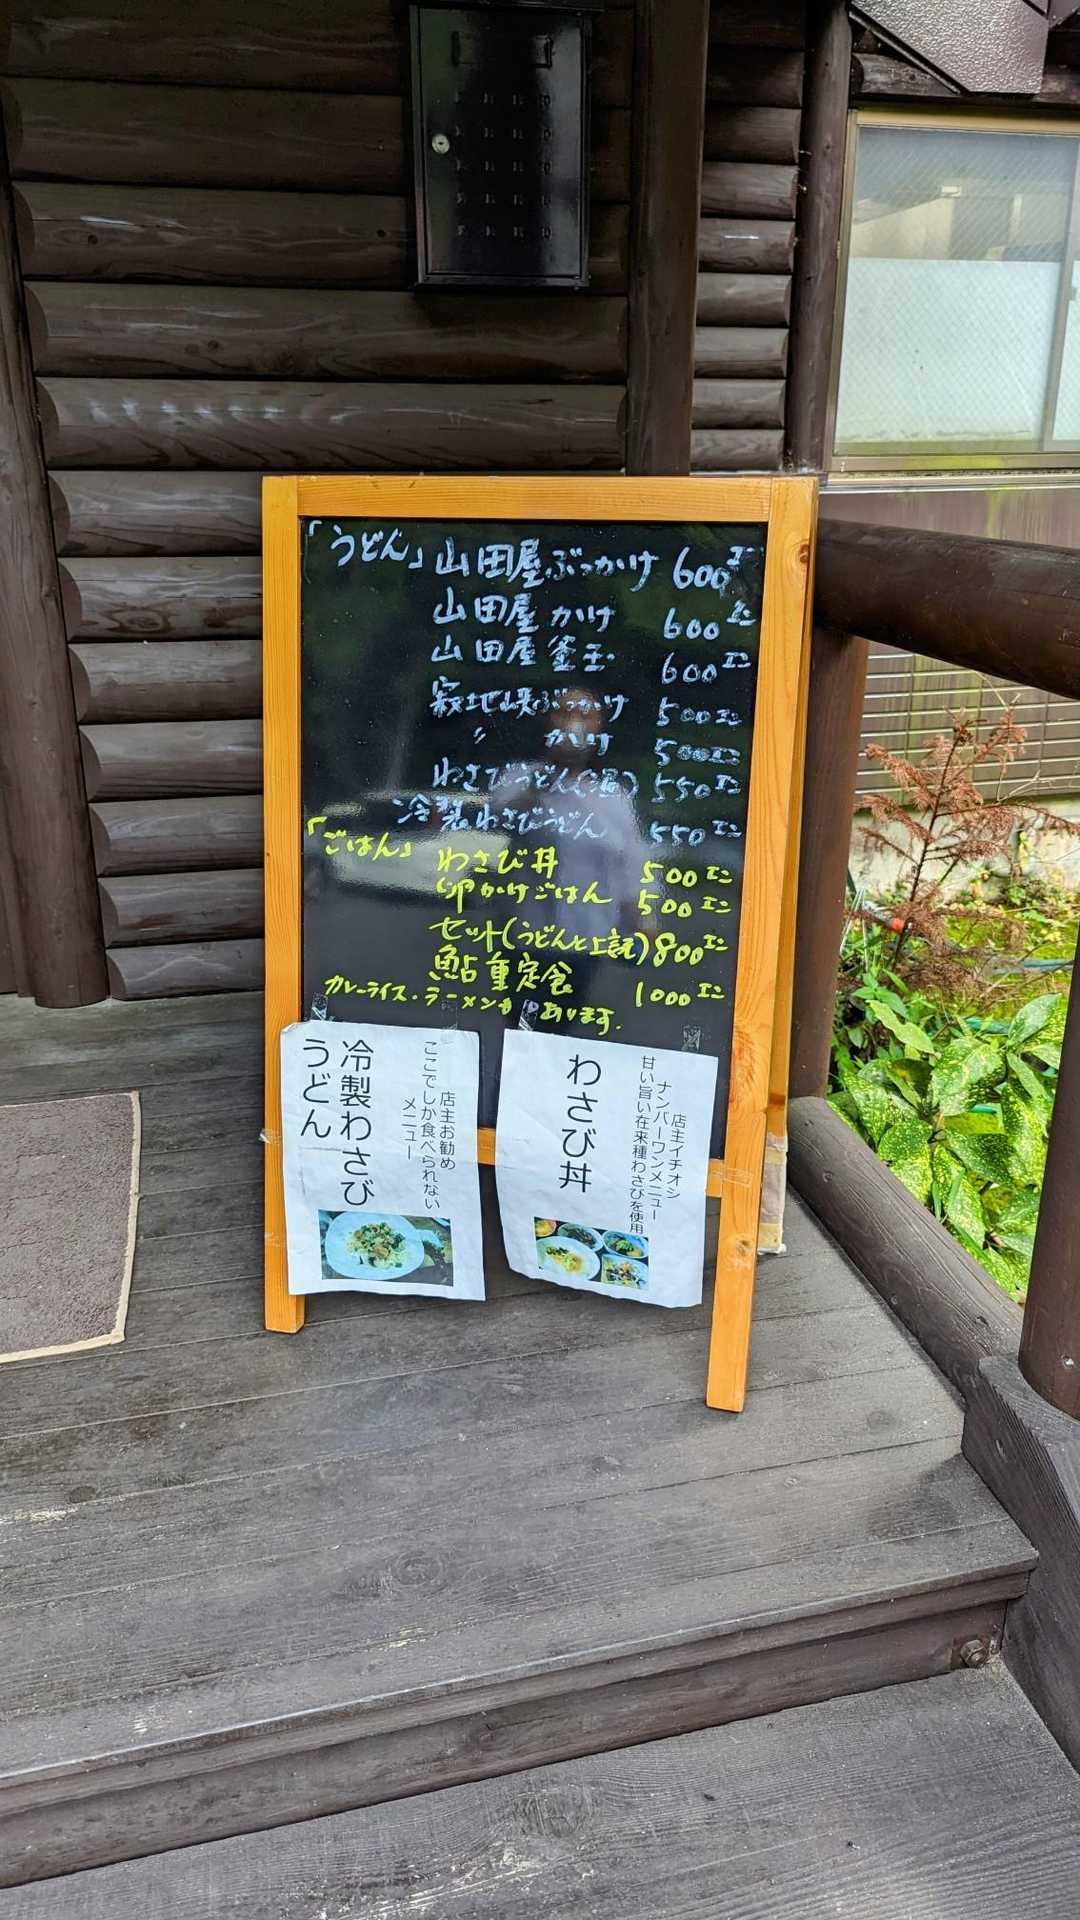 「うどん」山田屋ぶっかけ 600エン
山田屋かけ 600エン
山田屋釜玉 600エン
寂地峡ぶっかけ 500エン
〃 かけ 500エン
わさびうどん(温) 550エン
冷製わさびうどん 550エン
「ごはん」わさび丼 500エン
卵かけごはん 500エン
セット(うどんと上記) 800エン
鮎重定食 1000エン
カレーライス・ラーメンもあります.
店主お勧め
ここでしか食べられない
メニュー
冷製わさび
うどん
店主イチオシ
ナンバーワンメニュー
甘い旨い在来種わさびを使用
わさび丼